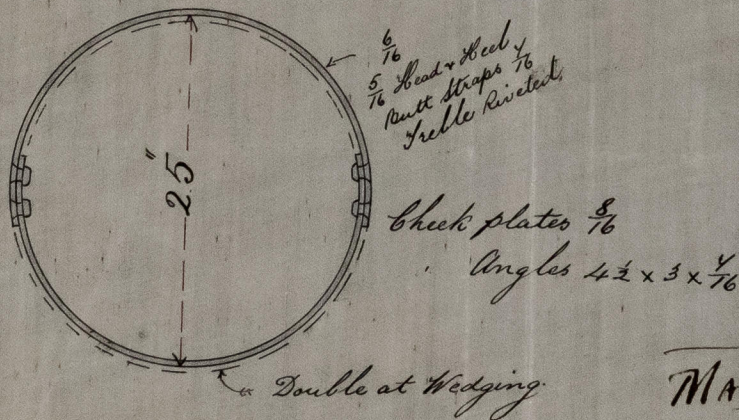 6/16
5/16 Head & Heel
Butt Straps 7/16
Treble Riveted
25"
Cheek plates 8/16
Angles 4½ x 3 x 7/16
Double at Wedging
MA